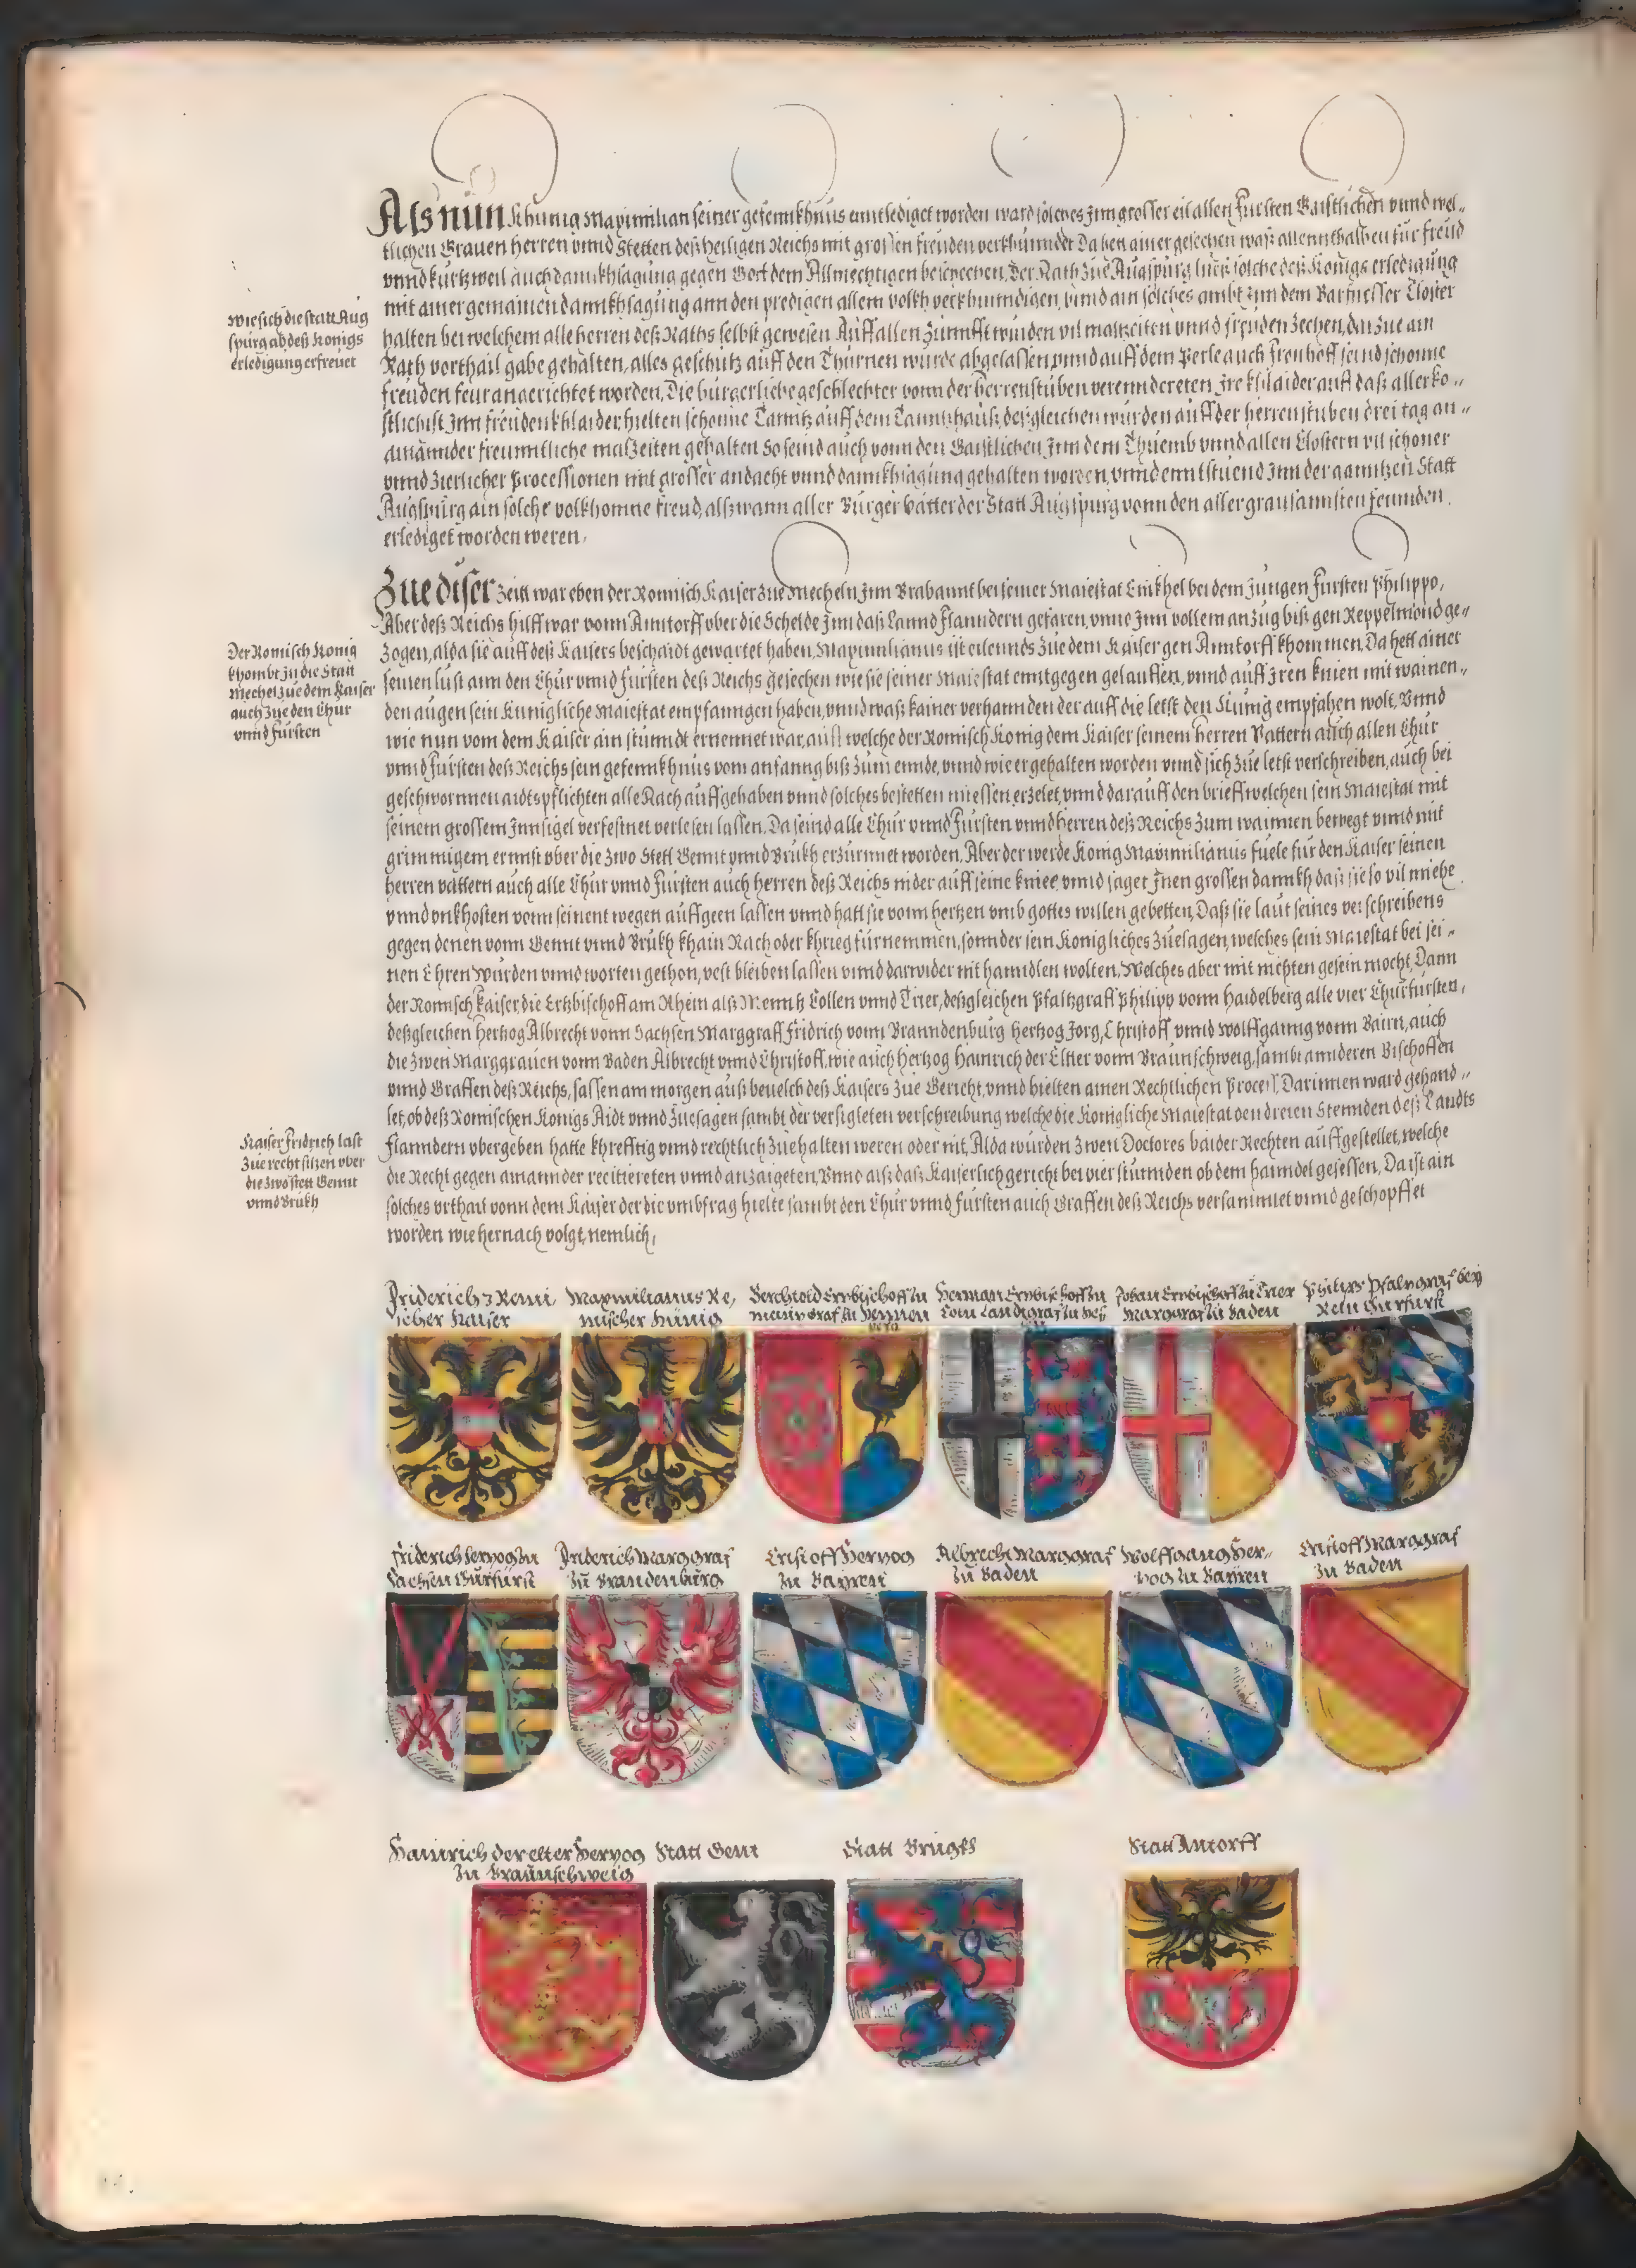 Als nun Khunig Maximilian seiner gefennkhnus enntlediget worden ward solches Inn grosser eil allen Fursten Gaistlichen vnnd wel-
tlichen Grauen herren vnnd Stetten deß heiligen Reichs mit grossen freuden verkhunndet Da hett ainer gesechen waß allennthalben für freüd
vnnd kurtzweil auch dannkhsagung gegen Gott dem Allmechtigen beschechen, Der Rath Züe Augspürg ließ solche deß Konigs erledigung
mit ainer gemainen dannkhsagung ann den predigen allem volkh verkhunndigen, vnnd ain solches ambt Inn dem Barfuesser Closter
halten bei welchem alle herren deß Raths selbst gewesen Auff allen Zünnfft wurden vil malzeiten vnnd freuden Zechen, da Züe ain
Rath vorthail gabe gehalten, alles geschutz auff den Thürnen wurde abgelassen, vnnd auff dem Perle auch Fronhoff seind schonne
freuden feur angerichtet worden, Die burgerliche geschlechter vonn der herrenstuben verenndereten Ire khlaider auff daß aller ko-
stlichist Inn freuden khlaider, hielten schonne Tanntz auff dem Tanntzhauß, deßgleichen wurden auff der herrenstuben drei tag an-
ainannder freunntliche malzeiten gehalten So seind auch vonn den Gaistlichen Inn dem Thuemb vnnd allen Clostern vil schoner
vnnd Zierlicher Processionen mit grosser andacht vnnd dannkhsagung gehalten worden, vnnd enntstuend Inn der ganntzen Statt
Augspurg ain solche volkhomne freud, alß wann aller Burger vätter der Statt Augspurg vonn den aller grausamisten feinnden
erlediget worden weren,
Wie sich die statt Aug
spurg ab deß Konigs
erledigung erfreuet
Zue diser Zeitt war eben der Romisch Kaiser Zue Mecheln Inn Brabannt bei seiner Maiestat Einkhel bei dem Jungen Fursten Philippo,
Aber deß Reichs hilff war vonn Anntorff vber die Schelde Inn daß Lannd Flanndern gefaren, vnnd Inn vollem anzug biß gen Reppelmond ge-
Zogen, alda sie auff deß Kaisers beschaidt gewartet haben, Maximilianus ist eilennds Zue dem Kaiser gen Anntorff khommen, Da hett ainer
seinen lust ann den Chur vnnd Fursten deß Reichs gesechen wie sie seiner Maiestat enntgegen gelauffen, vnnd auff Iren knien mit wainen-
den augen sein Kunigliche Maiestat empfanngen haben, vnnd waß kainer verhannden der auff die letst den Kunig empfahen wolt, Vnnd
wie nun vom dem Kaiser ain stunndt ernennet war, auff welche der Romisch Konig dem Kaiser seinem herren Vattern auch allen Chur
vnnd Fursten deß Reichs sein gefennkhnus vom anfanng biß Zum ennde, vnnd wie er gehalten worden vnnd sich Zue letst verschreiben, auch bei
geschwornnen aidtspflichten alle Rach auffgehaben vnnd solches bestetten muessen erzelet, vnnd darauff den brieff welchen sein Maiestat mit
seinem grossem Innsigel verfestnet verlesen lassen, Da seind alle Chur vnnd Fursten vnnd herren deß Reichs Zum wainnen bewegt vnnd mit
grimmigem ernnst vber die Zwo Stett Gennt vnnd Brukh erzürnnet worden, Aber der werde Konig Maximilianus fuele fur den Kaiser seinen
herren vattern auch alle Chur vnnd Fursten auch herren deß Reichs nider auff seine kniee vnnd saget Inen grossen dannkh daß sie so vil miehe
vnnd vnkhosten vonn seinent wegen auffgeen lassen vnnd hatt sie vonn hertzen vmb gottes willen gebetten, Daß sie laut seines verschreibens
gegen denen vonn Gennt vnnd Brukh khain Rach oder khrieg furnemmen, sonnder sein Konigliches Zuesagen, welches sein Maiestat bei sei-
nen Ehren wurden vnnd worten gethon, vest bleiben lassen vnnd darwider nit hanndlen wolten, Welches aber mit nichten gesein mocht, Dann
der Romisch Kaiser, die Ertzbischoff am Rhein alß Menntz Collen vnnd Trier, deßgleichen Pfaltzgraff Philipp vonn Haidelberg alle vier Churfursten,
deßgleichen hertzog Albrecht vonn Sachsen Marggraff Fridrich vonn Branndenburg hertzog Jorg, Christoff vnnd Wolffganng vonn Bairn, auch
die Zwen Marggrauen vonn Baden Albrecht vnnd Christoff, wie auch hertzog Hainrich der Elter vonn Braunschweig, sambt annderen Bischoffen
vnnd Graffen deß Reichs, sassen am morgen auß beuelch deß Kaisers Zue Gericht, vnnd hielten ainen Rechtlichen Proceß, Darinnen ward gehand-
let, ob deß Romischen Konigs Aidt vnnd Zuesagen sambt der versigleten verschreibung welche die Konigliche Maiestat den dreien Stennden deß Landts
Flanndern vbergeben hatte khrefftig vnnd rechtlich Zuehalten weren oder nit, Alda wurden Zwen Doctores baider Rechten auffgestellet, welche
die Recht gegen ainannder recitiereten vnnd anzaigeten, Vnnd alß daß Kaiserlich gericht bei vier stunnden ob dem hanndel gesessen, Da ist ain
solches vrthail vonn dem Kaiser der die vmbfrag hielte sambt den Chur vnnd fursten auch Graffen deß Reichs versammlet vnnd geschopffet
worden wie hernach volgt, nemlich,
Der Romisch Konig
khombt Jn die Statt
Mechel Zue dem Kaiser
auch Zue den Chur
vnnd fursten
Kaiser Fridrich last
Zue recht sitzen vber
die Zwo stett Gennt
vnnd Brukh
Friderich 3 Remi,
scher Kaiser
Maximilianus Re,
mischer Künig
Berchtold Ertzbischoff zu
Meintz Graf zu Hennen
berg
Herman Ertzbischoff zu
Coln Landtgraf zu Hes
Johan Ertzbischoff zu Trier
Marggraf zu Baden
Philips Pfaltzgraf bey
Rein Curfürst
Friderich Hertzog zu
Sachsen Curfürst
Friderich Marggraf
Zu Brandenburg
Cristoff Hertzog
Zu Bayren
Albrecht Marggraf
Zu Baden
Wolffgang Her-
tzog zu Bayren
Cristoff Marggraf
Zu Baden
Hainrich der elter Hertzog
Zu Braunschweig
Statt Gent
Statt Brugkh
Statt Antorff